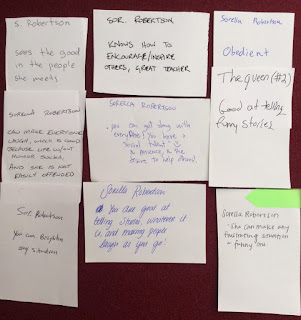 S. Robertson
sees the good
in the people
she meets
SOR. ROBERTSON
KNOWS HOW TO
ENCOURAGE/INSPIRE
OTHERS, GREAT TEACHER
Sorella Robertson
Obedient
The Queen (#2)
Good at telling
funny stories
SORELLA ROBERTSON
CAN MAKE EVERYONE
LAUGH, WHICH IS GOOD
BECAUSE LIFE W/OUT
HUMOR SUCKS,
AND SHE IS NOT
EASILY OFFENDED
SORELLA ROBERTSON
you can get along with
everyone! You have a
"social talent"
& presence, & the
desire to help others!
Sor. Robertson
You can Brighten
any situation
Sorella Robertson
You are good at
telling stories, whatever it
is, and making people
laugh as you go!
Sorella Robertson
- She can make any
frustrating situation
a funny one